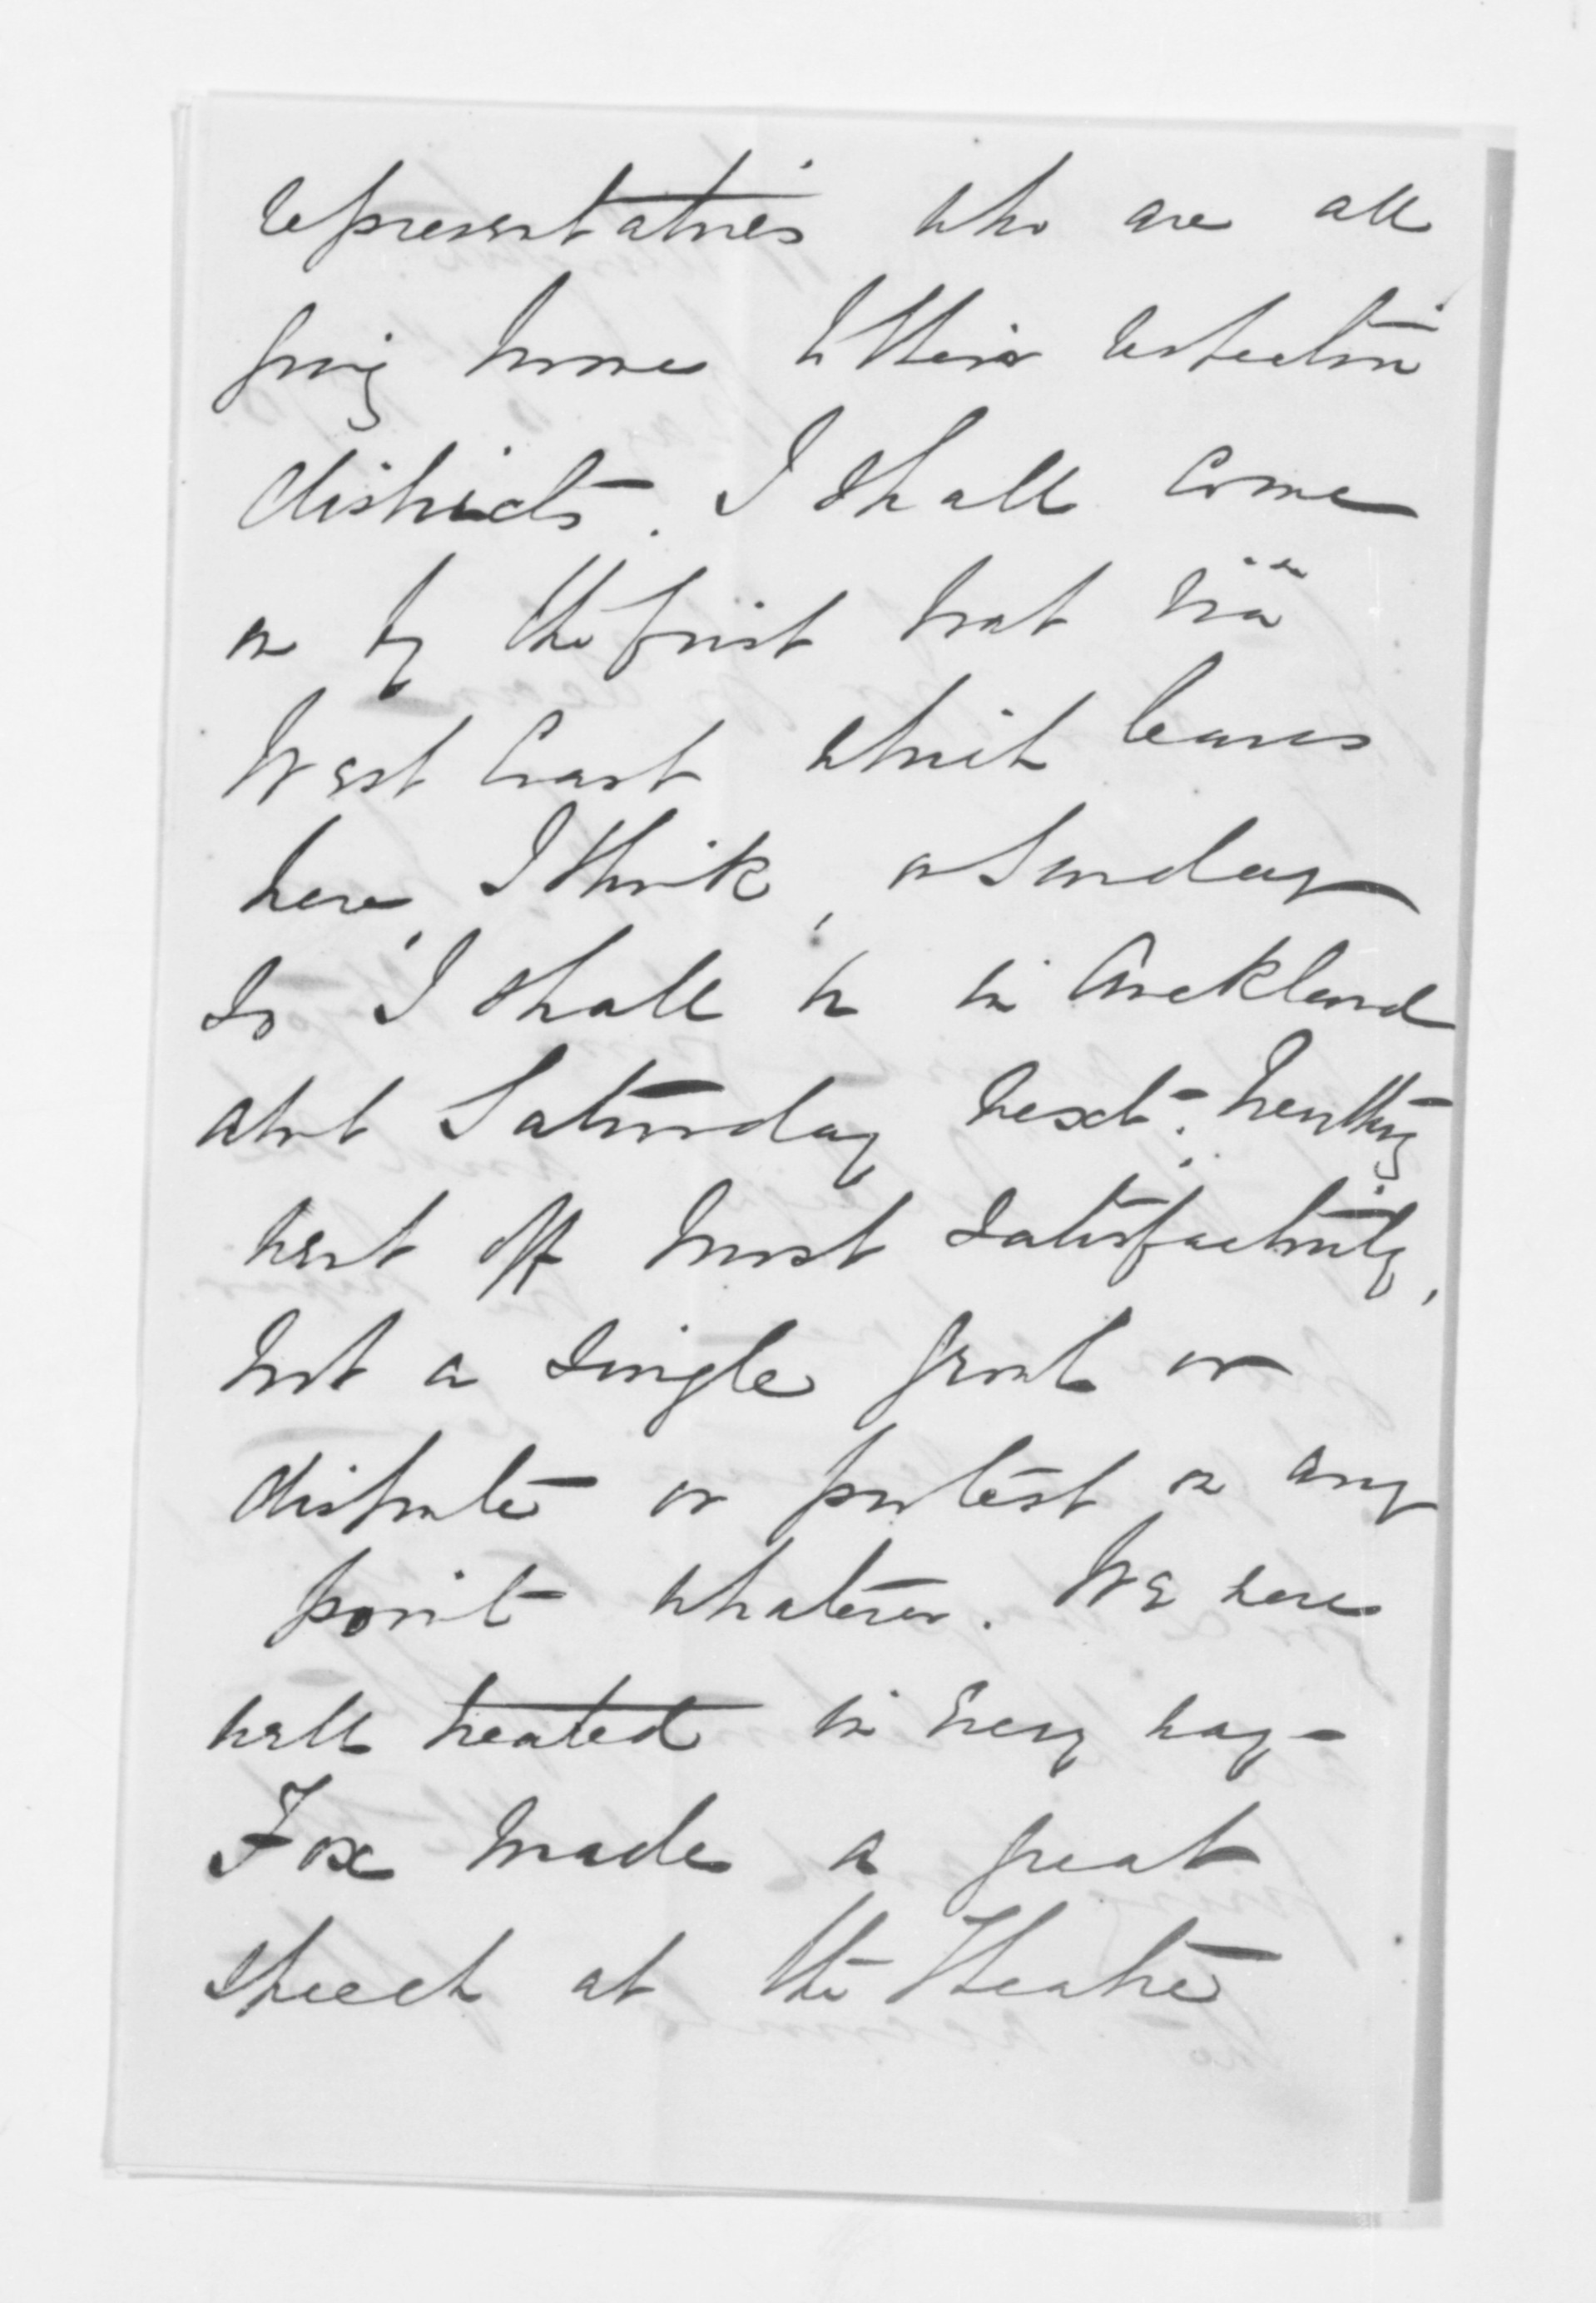 representatives who are all
going home to their respective
districts. I shall come
on by the first boat viâ
West Coast which leaves
here, I think, on Sunday
so I shall be in Auckland
about Saturday next. Everything
went off most satisfactorily,
not a single growl or
dispute or protest on any
point whatever. We were
well treated in every way -
Fox made a great
speech at the Theatre